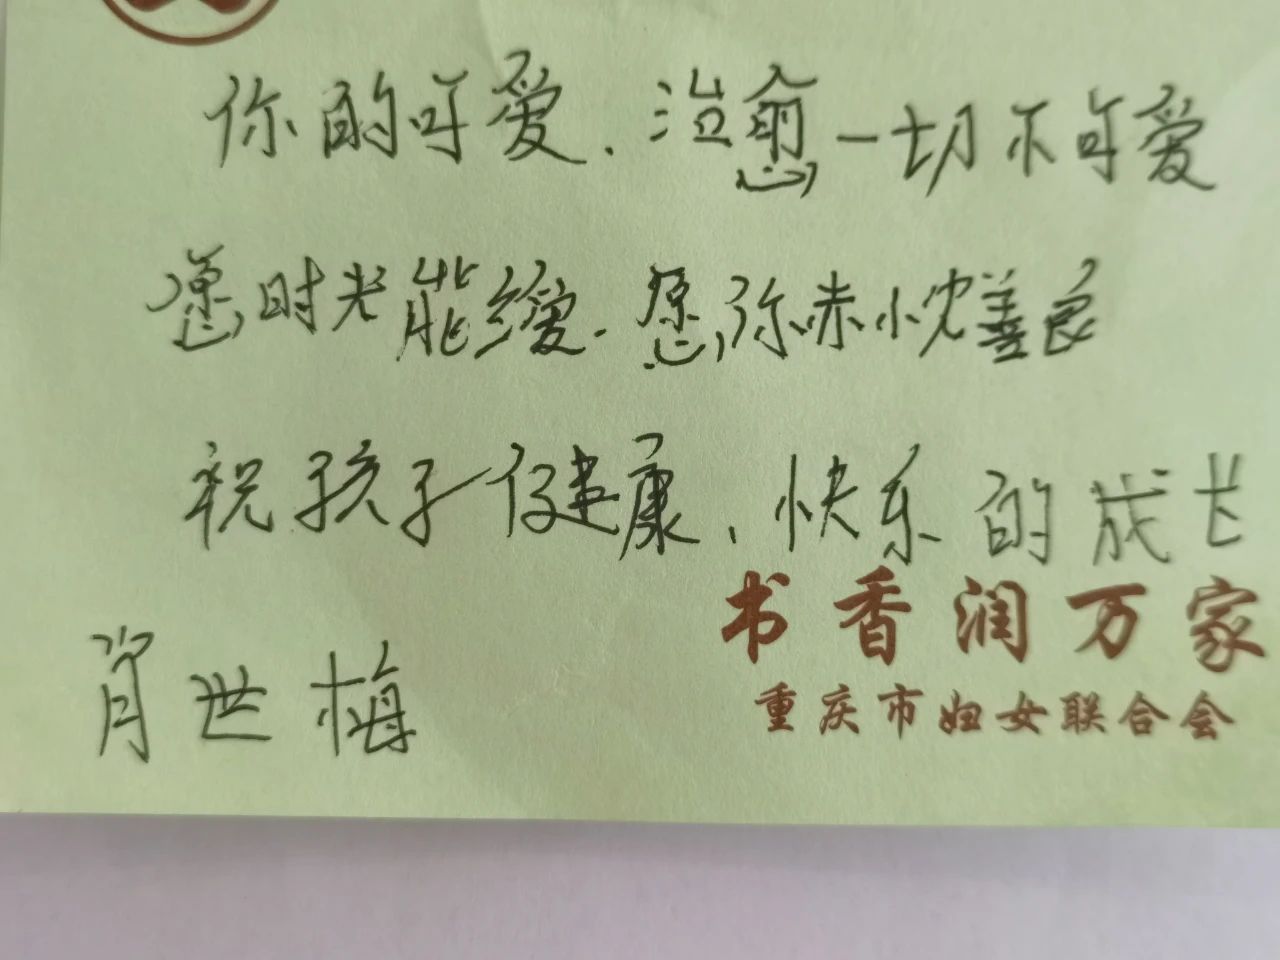 你的可爱.治愈一切不可爱
愿时光能缓.愿你赤小忱善良
祝孩子健康,快乐的成长
书香润万家
重庆市妇女联合会
肖世梅